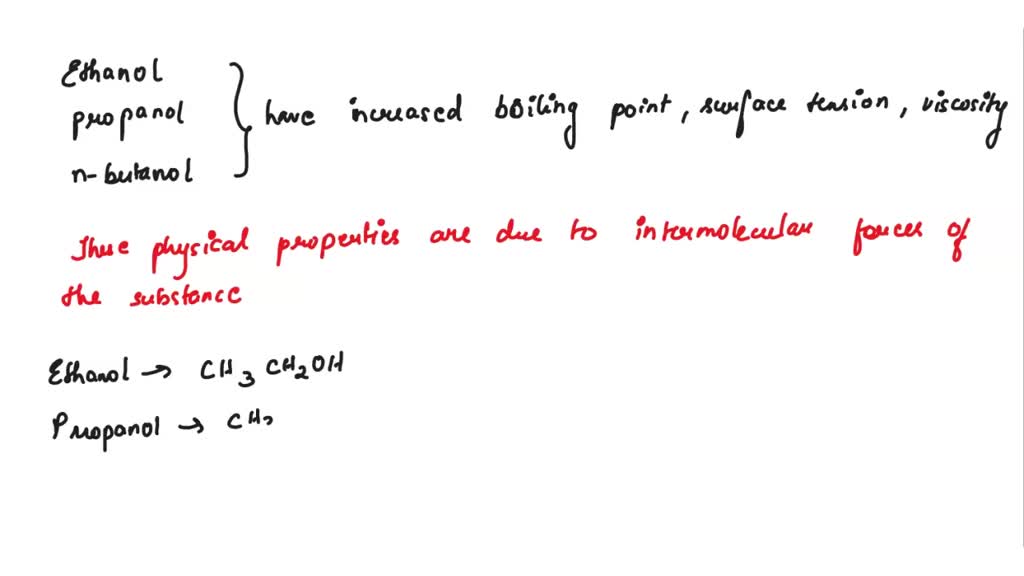 Ethanol
propanol
n-butanol
have increased boiling point, surface tension, viscosity
These physical properties are due to intermolecular forces of
the substance
Ethanol → CH3 CH2OH
Propanol → CH2